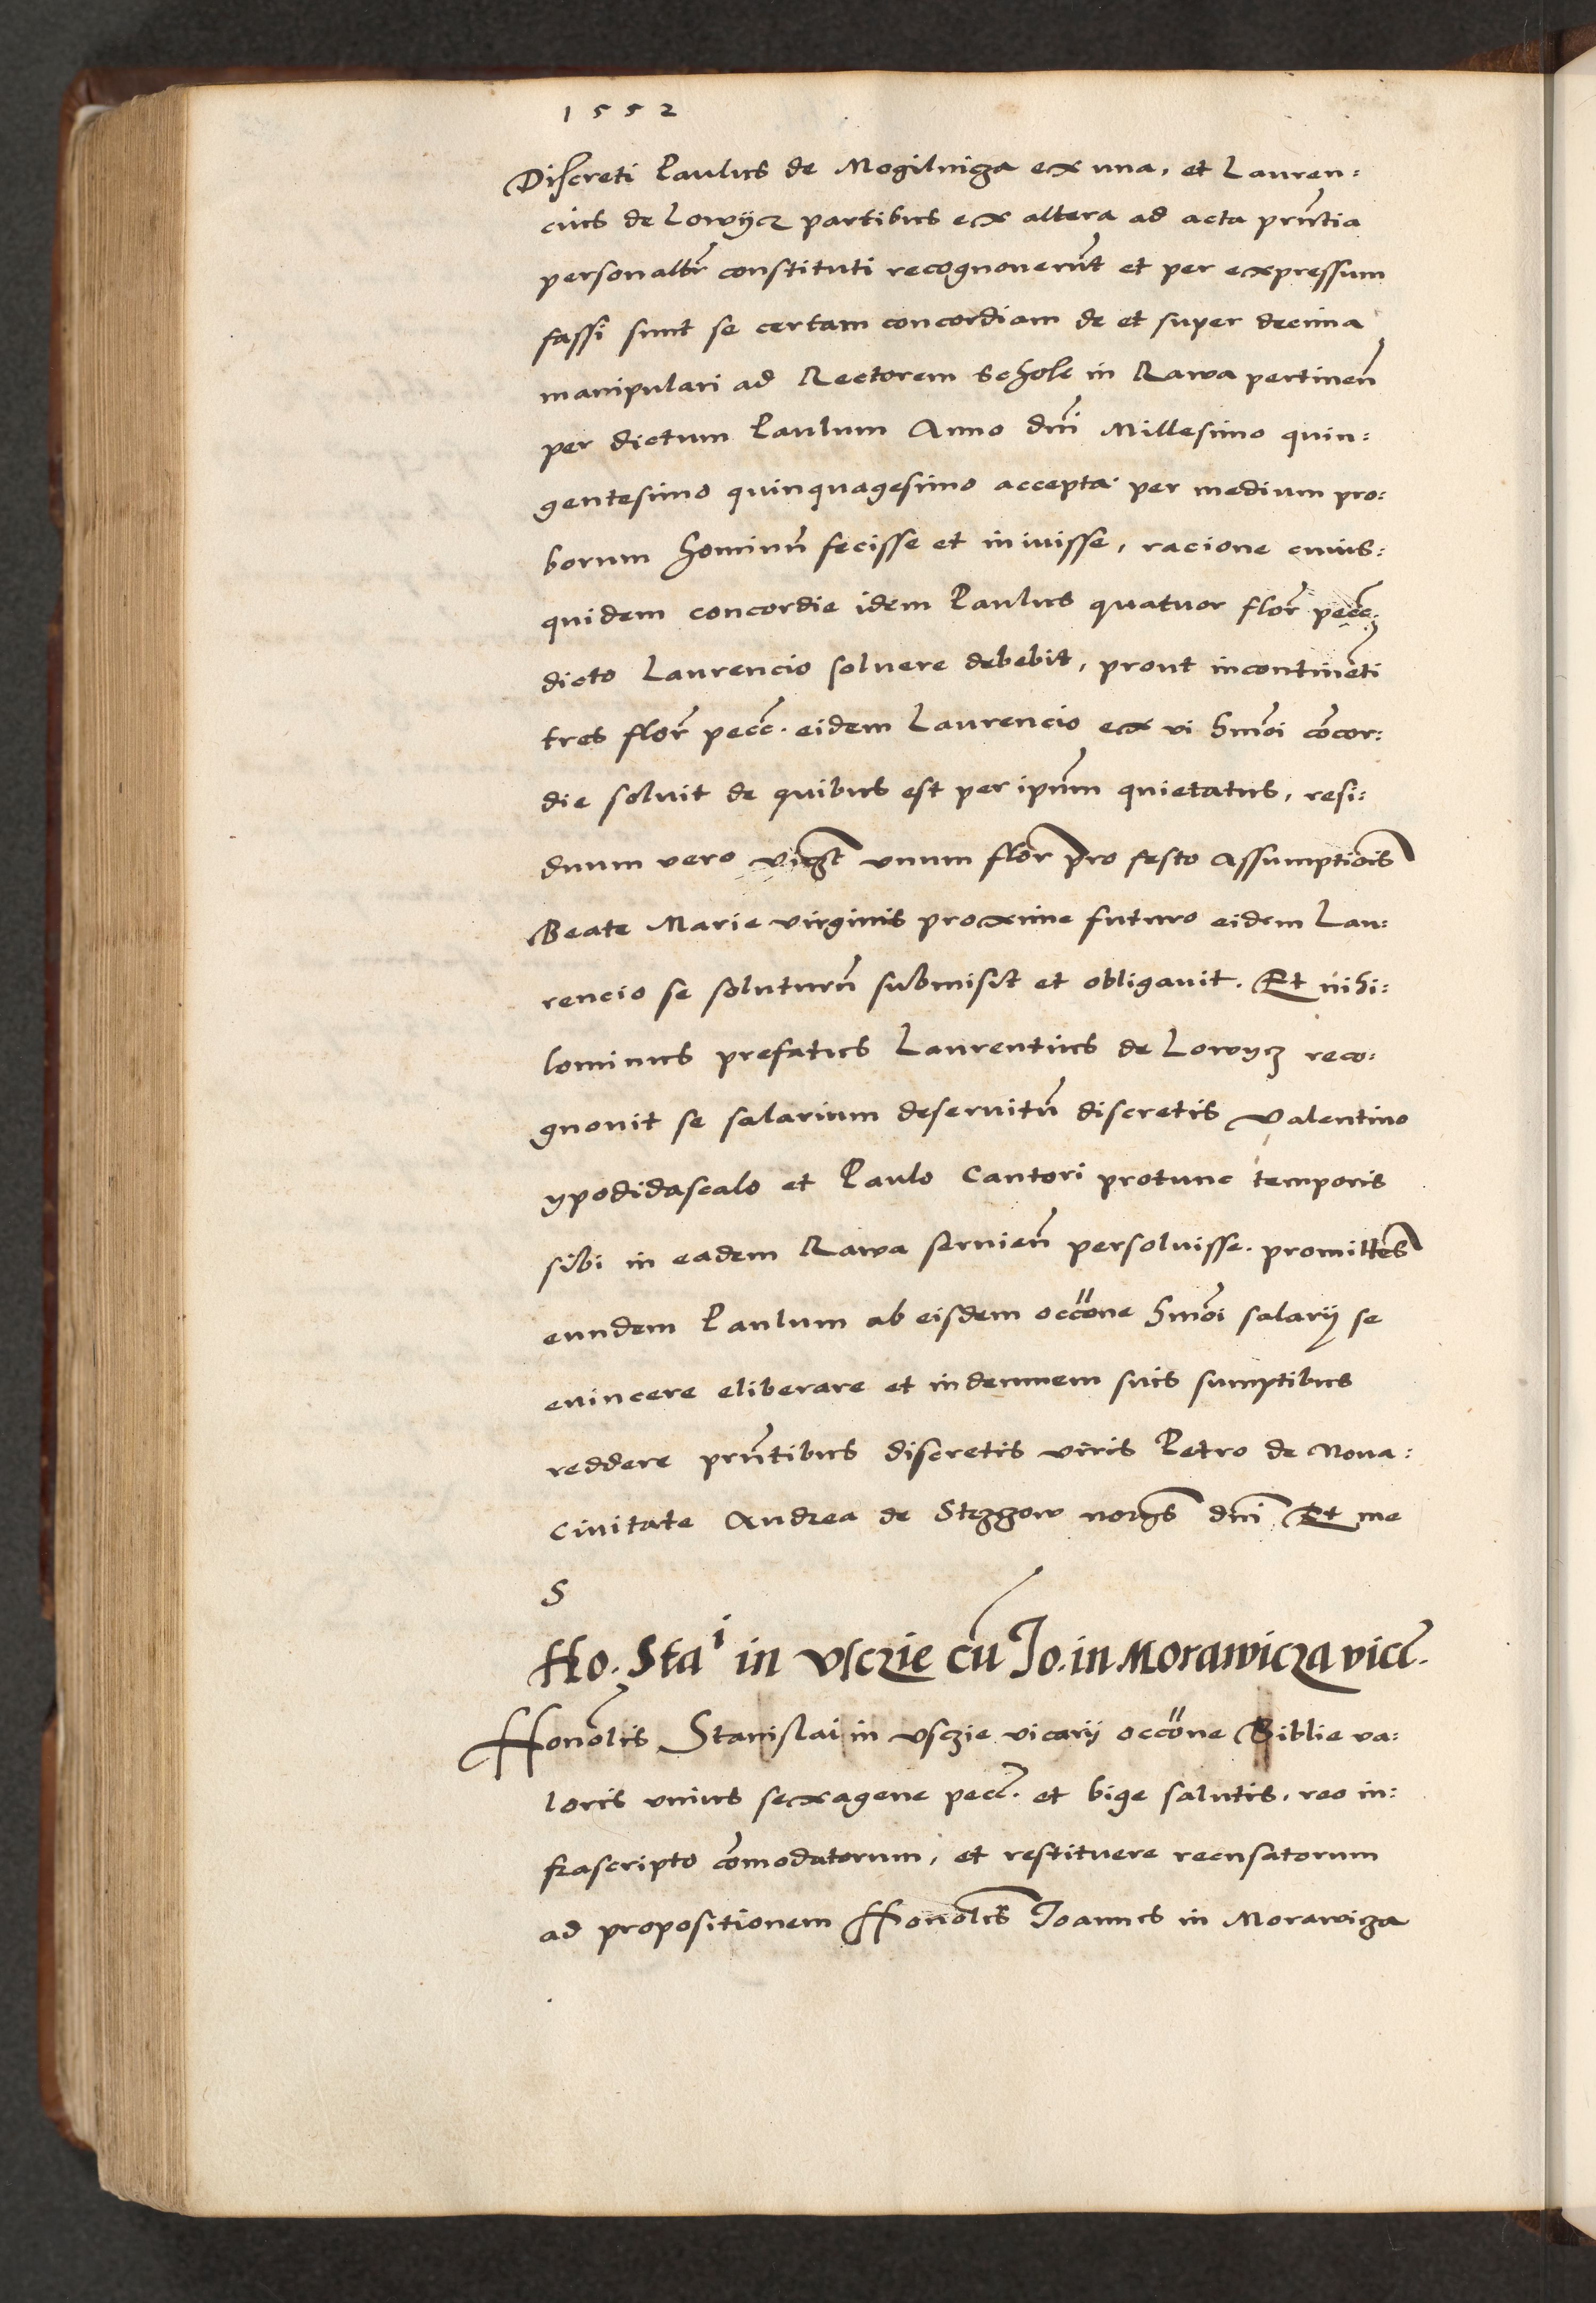 1552
Discreti Paulus de Mogilnicza ex una, et Lauren:
cius de Lowycz partibus ex altera ad acta prñtia
personaltr̃ constituti recognoverũt et per expressum
fassi sunt se certam concordiam de et super decima
manipulari ad Rectorem schole in Rawa pertineñ
per dictum Paulum Anno dñi Millesimo quin:
gentesimo quinquagesimo accepta per medium pro:
borum hominũ fecisse et inivisse, racione cuius:
quidem concordie idem Paulus quatuor flor̃ pecc̃
dicto Laurencio soluere debebit, prout incontinẽti
tres flor̃ pecc̃. eidem Laurencio ex vi hmõi cõcor:
die soluit de quibus est per ipũm quietatus, resi:
duum vero unum flor̃ pro festo Assumptiõis
Beate Marie virginis proxime futuro eidem Lau:
rencio se soluturũ submisit et obligavit. Et nihi:
lominus prefatus Laurentius de Lowycz reco:
gnovit se salarium deservitũ discretis Valentino
ypodidascalo et Paulo Cantori protunc temporis
sibi in eadem Rawa servieñ persoluisse. promittẽs
eundem Paulum ab eisdem occõne hmõi salarij se
evincere eliberare et indemnem suis sumptibus
reddere prñtibus discretis viris Petro de Nova:
civitate Andrea de not̃ dñi Et me
S
Ho. Staⁱ in Vsczie cũ Jo. in Morawicza vicc̃.
Honoĩlis Stanislai in Vsczie vicarij occõne Biblie va:
loris unius sexagene pecc̃. et bige salutis, reo in:
frascripto cõmodatorum, et restituere recusatorum
ad propositionem Honoĩlis Joannis in Morawicza